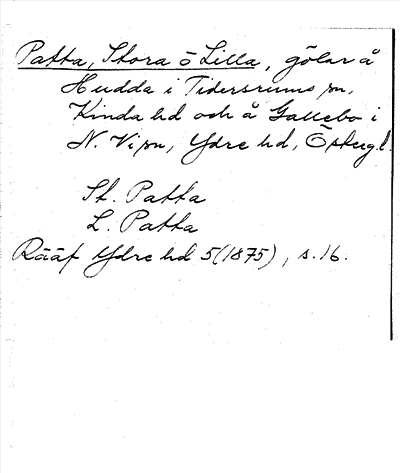 Patta, Stora o Lilla, gölar å
Hudda i Tidersrums sn,
Kinda hd och å Gallebo i
N. Vi sn, Ydre hd, Östergl.
St. Patta
L. Patta
Rääf Ydre hd 5 (1875), s. 16.